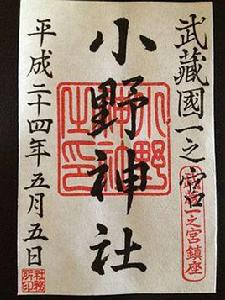 武藏國一之宮
一之宮鎮座
小野神社
小野神社之印
平成二十四年五月五日
社務所印